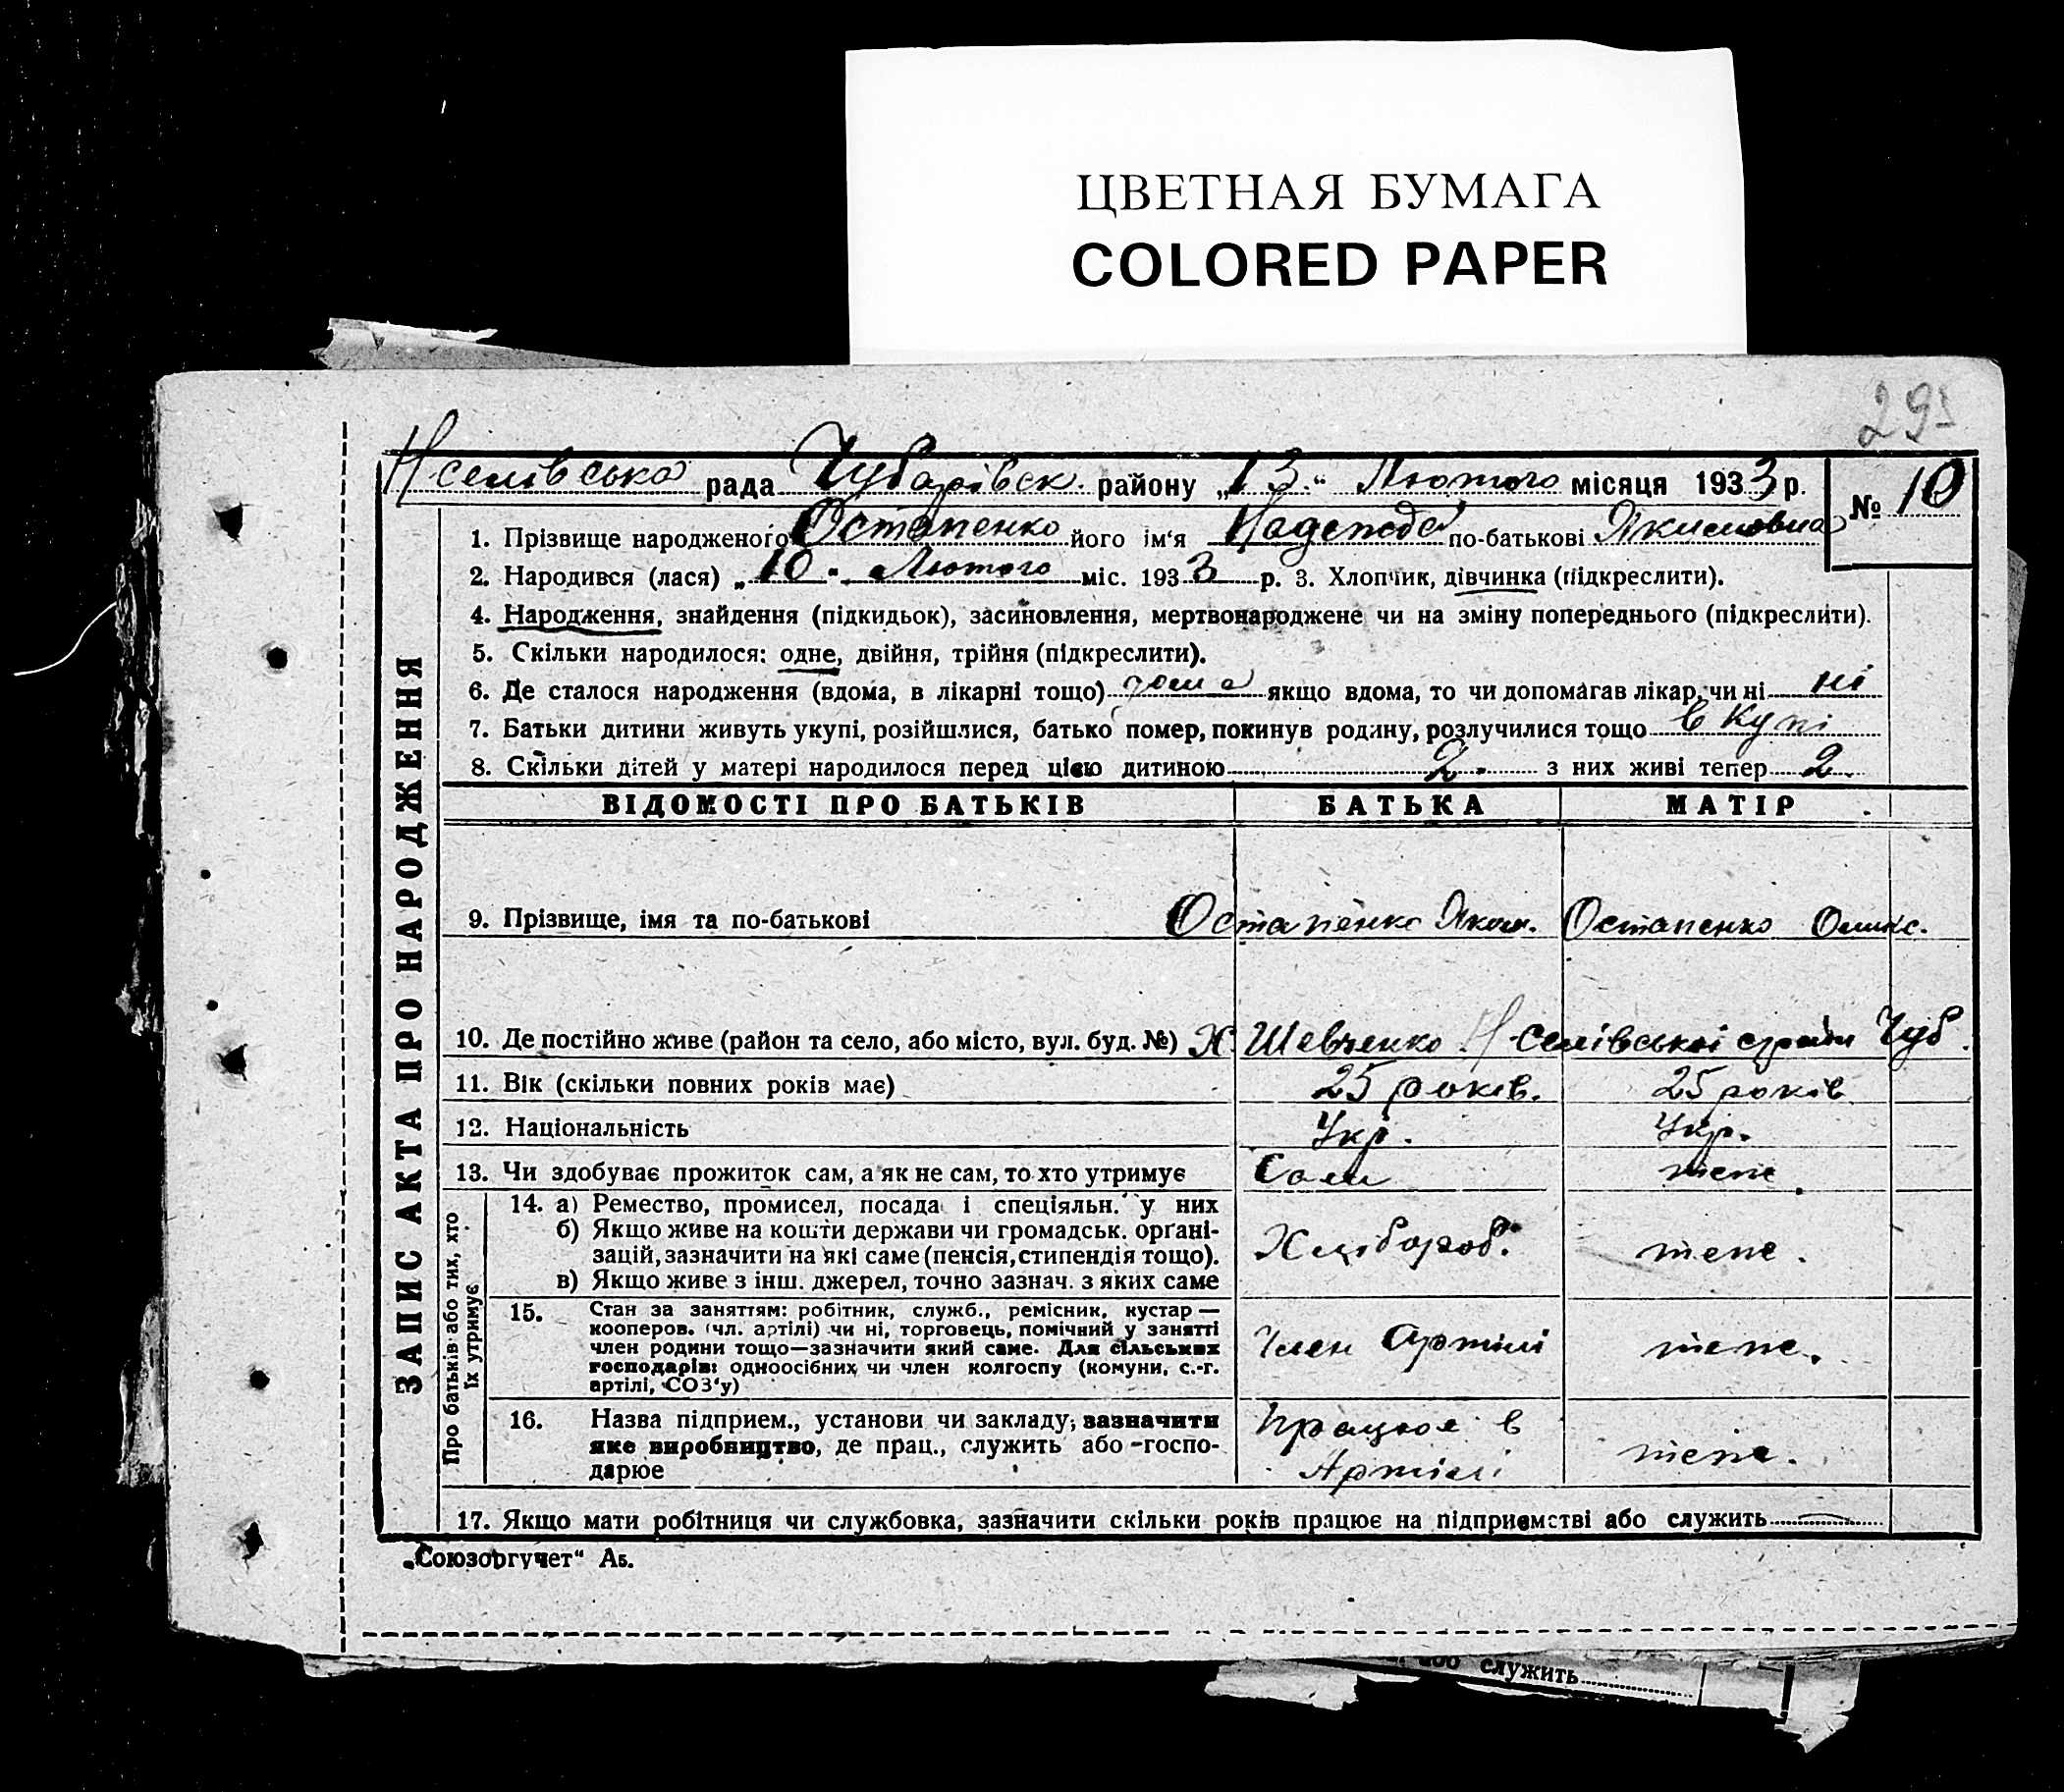 ЦВЕТНАЯ БУМАГА
COLORED PAPER
29
Нселівська рада Чубарівськ. району „13“ Лютого місяця 1933 р. № 10
1. Прізвище народженого Остапенко його ім‘я по-батькові Якимовна
2. Народився (лася) „10“ Лютого міс. 1933 р. 3. Хлопчик, дівчинка (підкреслити).
4. Народження, знайдення (підкидьок), засиновлення, мертвонароджене чи на зміну попереднього (підкреслити).
5. Скільки народилося: одне, двійня, трійня (підкреслити).
6. Де сталося народження (вдома, в лікарні тощо) дома якщо вдома, то чи допомагав лікар, чи ні ні
7. Батьки дитини живуть укупі, розійшлися, батько помер, покинув родину, розлучилися тощо в купі
8. Скільки дітей у матері народилося перед цією дитиною 2. з них живі тепер 2.
ЗАПИС АКТА ПРО НАРОДЖЕННЯ
ВІДОМОСТІ ПРО БАТЬКІВ БАТЬКА МАТІР
9. Прізвище, імя та по-батькові Остапенко Яким. Остапенко
10. Де постійно живе (район та село, або місто, вул. буд. №) Х. Шевченко Нселівської с/ради Чуб.
11. Вік (скільки повних років має) 25 років. 25 років
12. Національність Укр. Укр.
13. Чи здобуває прожиток сам, а як не сам, то хто утримує Сам теж.
Про батьків або тих, хто їх утримує
14. а) Ремество, промисел, посада і спеціяльн. у них
б) Якщо живе на кошти держави чи громадськ. орґані-
зацій, зазначити на які саме (пенсія, стипендія тощо). Хлібороб. теж.
в) Якщо живе з інш. джерел, точно зазнач. з яких саме
15. Стан за заняттям: робітник, служб., ремісник, кустар —
кооперов. (чл. артілі) чи ні, торговець, помічний у занятті
член родини тощо—зазначити який саме. Для сільських
господарів: одноосібних чи член колгоспу (комуни, с.-г.
артілі, СОЗ‘у) Член Артілі теж.
16. Назва підприєм., установи чи закладу, зазначити
яке виробництво, де прац., служить або госпо-
дарює Працює в Артілі теж.
17. Якщо мати робітниця чи службовка, зазначити скільки років працює на підприємстві або служить —
„Союзоргучет“ Аб.
або служить